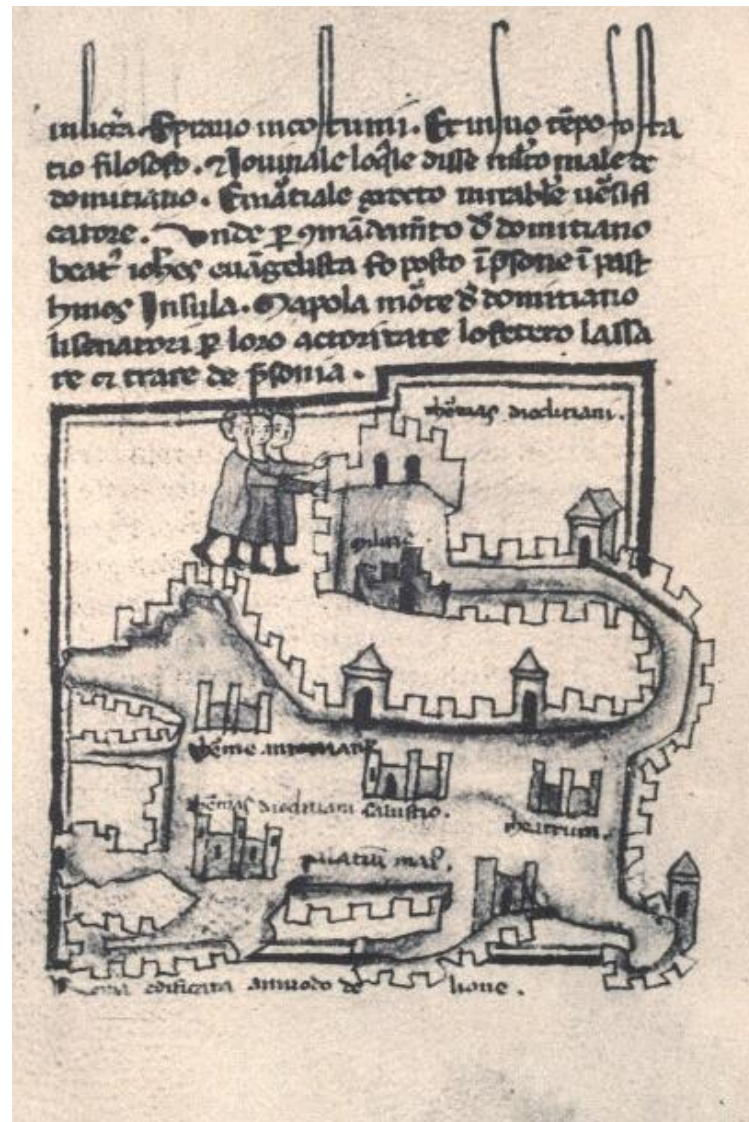 incostumi. Et insuo tēpo fo sta
tio filosofo. ⁊ Jouinale loq̄le disse mľto male de
domitiano. Emātiale mirabile uēsifi
catore. Unde ꝑ ꝯmādamīto đ domitiano
beat᾽ ioħes euāgelista fo posto ī p̄sone ī past
hmos Jnsula. Mapola mōte đ domitiano
lisenatori ꝑ loro actoritate lofecero lassa
re et trare de p̄sonia.
thermas diocletiani.
therme antoniane
thermas diocletiani salustio.
theatrum.
palatiū mai᾽.
Roma edificata amodo de lione.